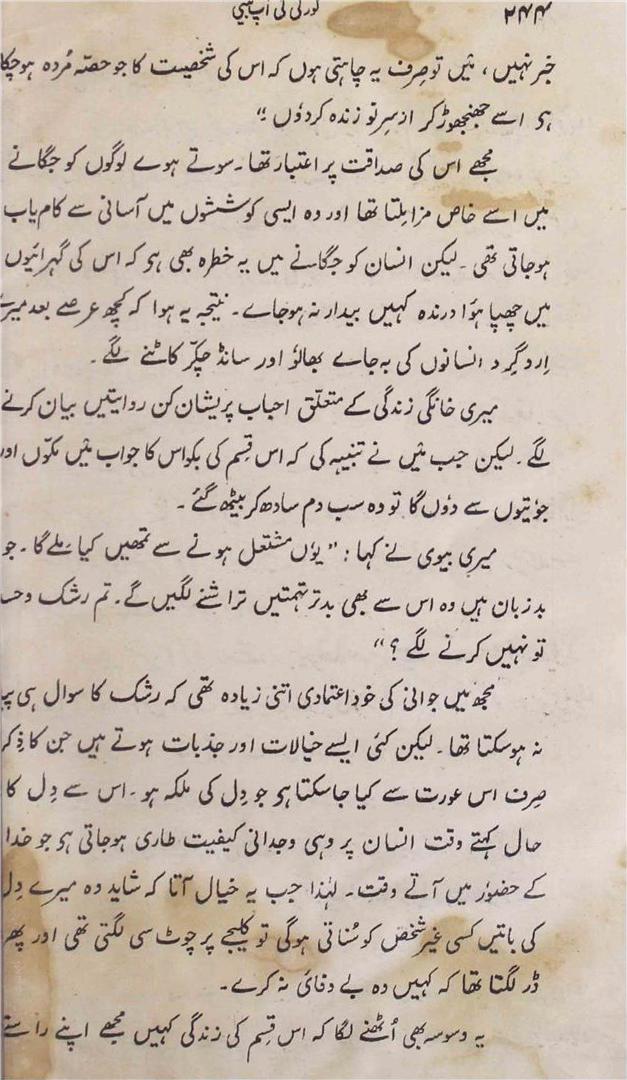 گورکی کی آپ بیتی ۲۴۴
خبر نہیں، مَیں تو صِرف یہ چاہتی ہوں کہ اس کی شخصیت کا جو حصّہ مُردہ ہوچکا
ہو اسے جھنجھوڑ کر ازسرِنو زندہ کردوٗں ۔“
مجھے اس کی صداقت پر اعتبار تھا۔ سوتے ہوے لوگوں کو جگانے
میں اسے خاص مزا مِلتا تھا اور وہ ایسی کوششوں میں آسانی سے کام یاب
ہوجاتی تھی ۔ لیکن انسان کو جگانے میں یہ خطرہ بھی ہو کہ اس کی گہرائیوں
میں چھپا ہؤا درندہ کہیں بیدار نہ ہوجاے۔ نتیجہ یہ ہوا کہ کچھ عرصے بعد میرے
اِرد گِرد انسانوں کی بہ جاے بھالوٗ اور سانڈ چکّر کاٹنے لگے ۔
میری خانگی زندگی کے متعلّق احباب پریشان کن روایتیں بیان کرنے
لگے۔ لیکن جب مَیں نے تنبیہ کی کہ اس قِسم کی بکواس کا جواب مَیں مکوّں اور
جوٗتیوں سے دوٗں گا تو وہ سب دم سادھ کر بیٹھ گئے ۔
میری بیوی نے کہا : ” یوٗں مشتعل ہونے سے تمھیں کیا مِلے گا ۔ جو
بد زبان ہیں وہ اس سے بھی بدتر تہمتیں تراشنے لگیں گے۔ تم رشک و
تو نہیں کرنے لگے ؟ “
مجھ میں جوانی کی خود اعتمادی اتنی زیادہ تھی کہ رشک کا سوال ہی
نہ ہوسکتا تھا ۔ لیکن کئی ایسے خیالات اور جذبات ہوتے ہیں جن کا ذِکر
صِرف اس عورت سے کیا جاسکتا ہو جو دِل کی ملکہ ہو ۔ اس سے دِل کا
حال کہتے وقت انسان پر وہی وجدانی کیفیت طاری ہوجاتی ہو جو خدا
کے حضوٗر میں آتے وقت۔ لہٰذا جب یہ خیال آتا کہ شاید وہ میرے دِل
کی باتیں کسی غیر شخص کو سُناتی ہوگی تو کلیجے پر چوٹ سی لگتی تھی اور پھر
ڈر لگتا تھا کہ کہیں وہ بے وفائ نہ کرے۔
یہ وسوسہ بھی اُٹھنے لگا کہ اس قِسم کی زندگی کہیں مجھے اپنے راستے